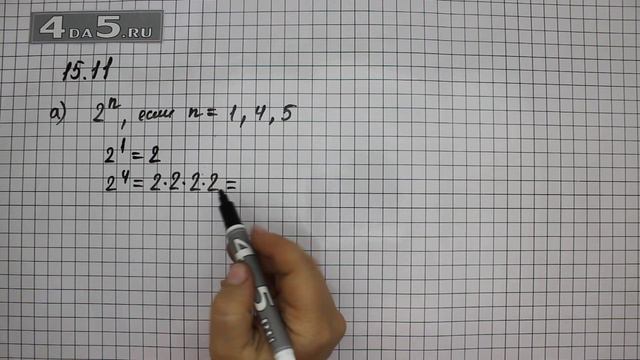 4DA5.RU
15.11
а) 2ⁿ, если n = 1, 4, 5
2¹ = 2
2⁴ = 2·2·2·2 =
4 5 RU